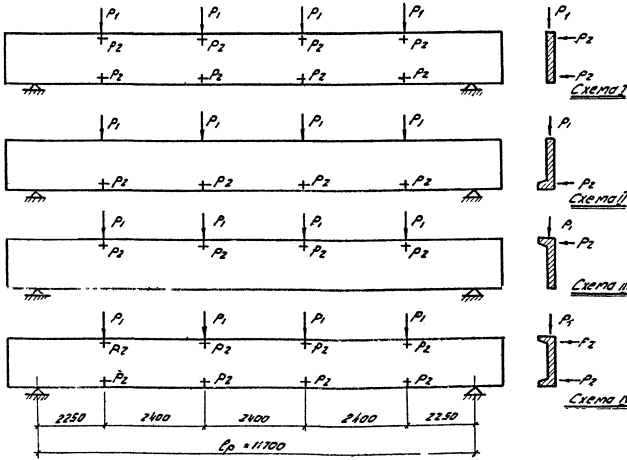 P₁ P₁ P₁ P₁ P₁
P₂ P₂ P₂ P₂ P₂
P₂ P₂ P₂ P₂ P₂
Схема I
P₁ P₁ P₁ P₁ P₁
P₂ P₂ P₂ P₂ P₂
Схема II
P₁ P₁ P₁ P₁ P₁
P₂ P₂ P₂ P₂ P₂
Схема III
P₁ P₁ P₁ P₁ P₁
P₂ P₂ P₂ P₂ P₂
P₂ P₂ P₂ P₂ P₂
Схема IV
2250 2400 2400 2400 2250
ℓp = 11700